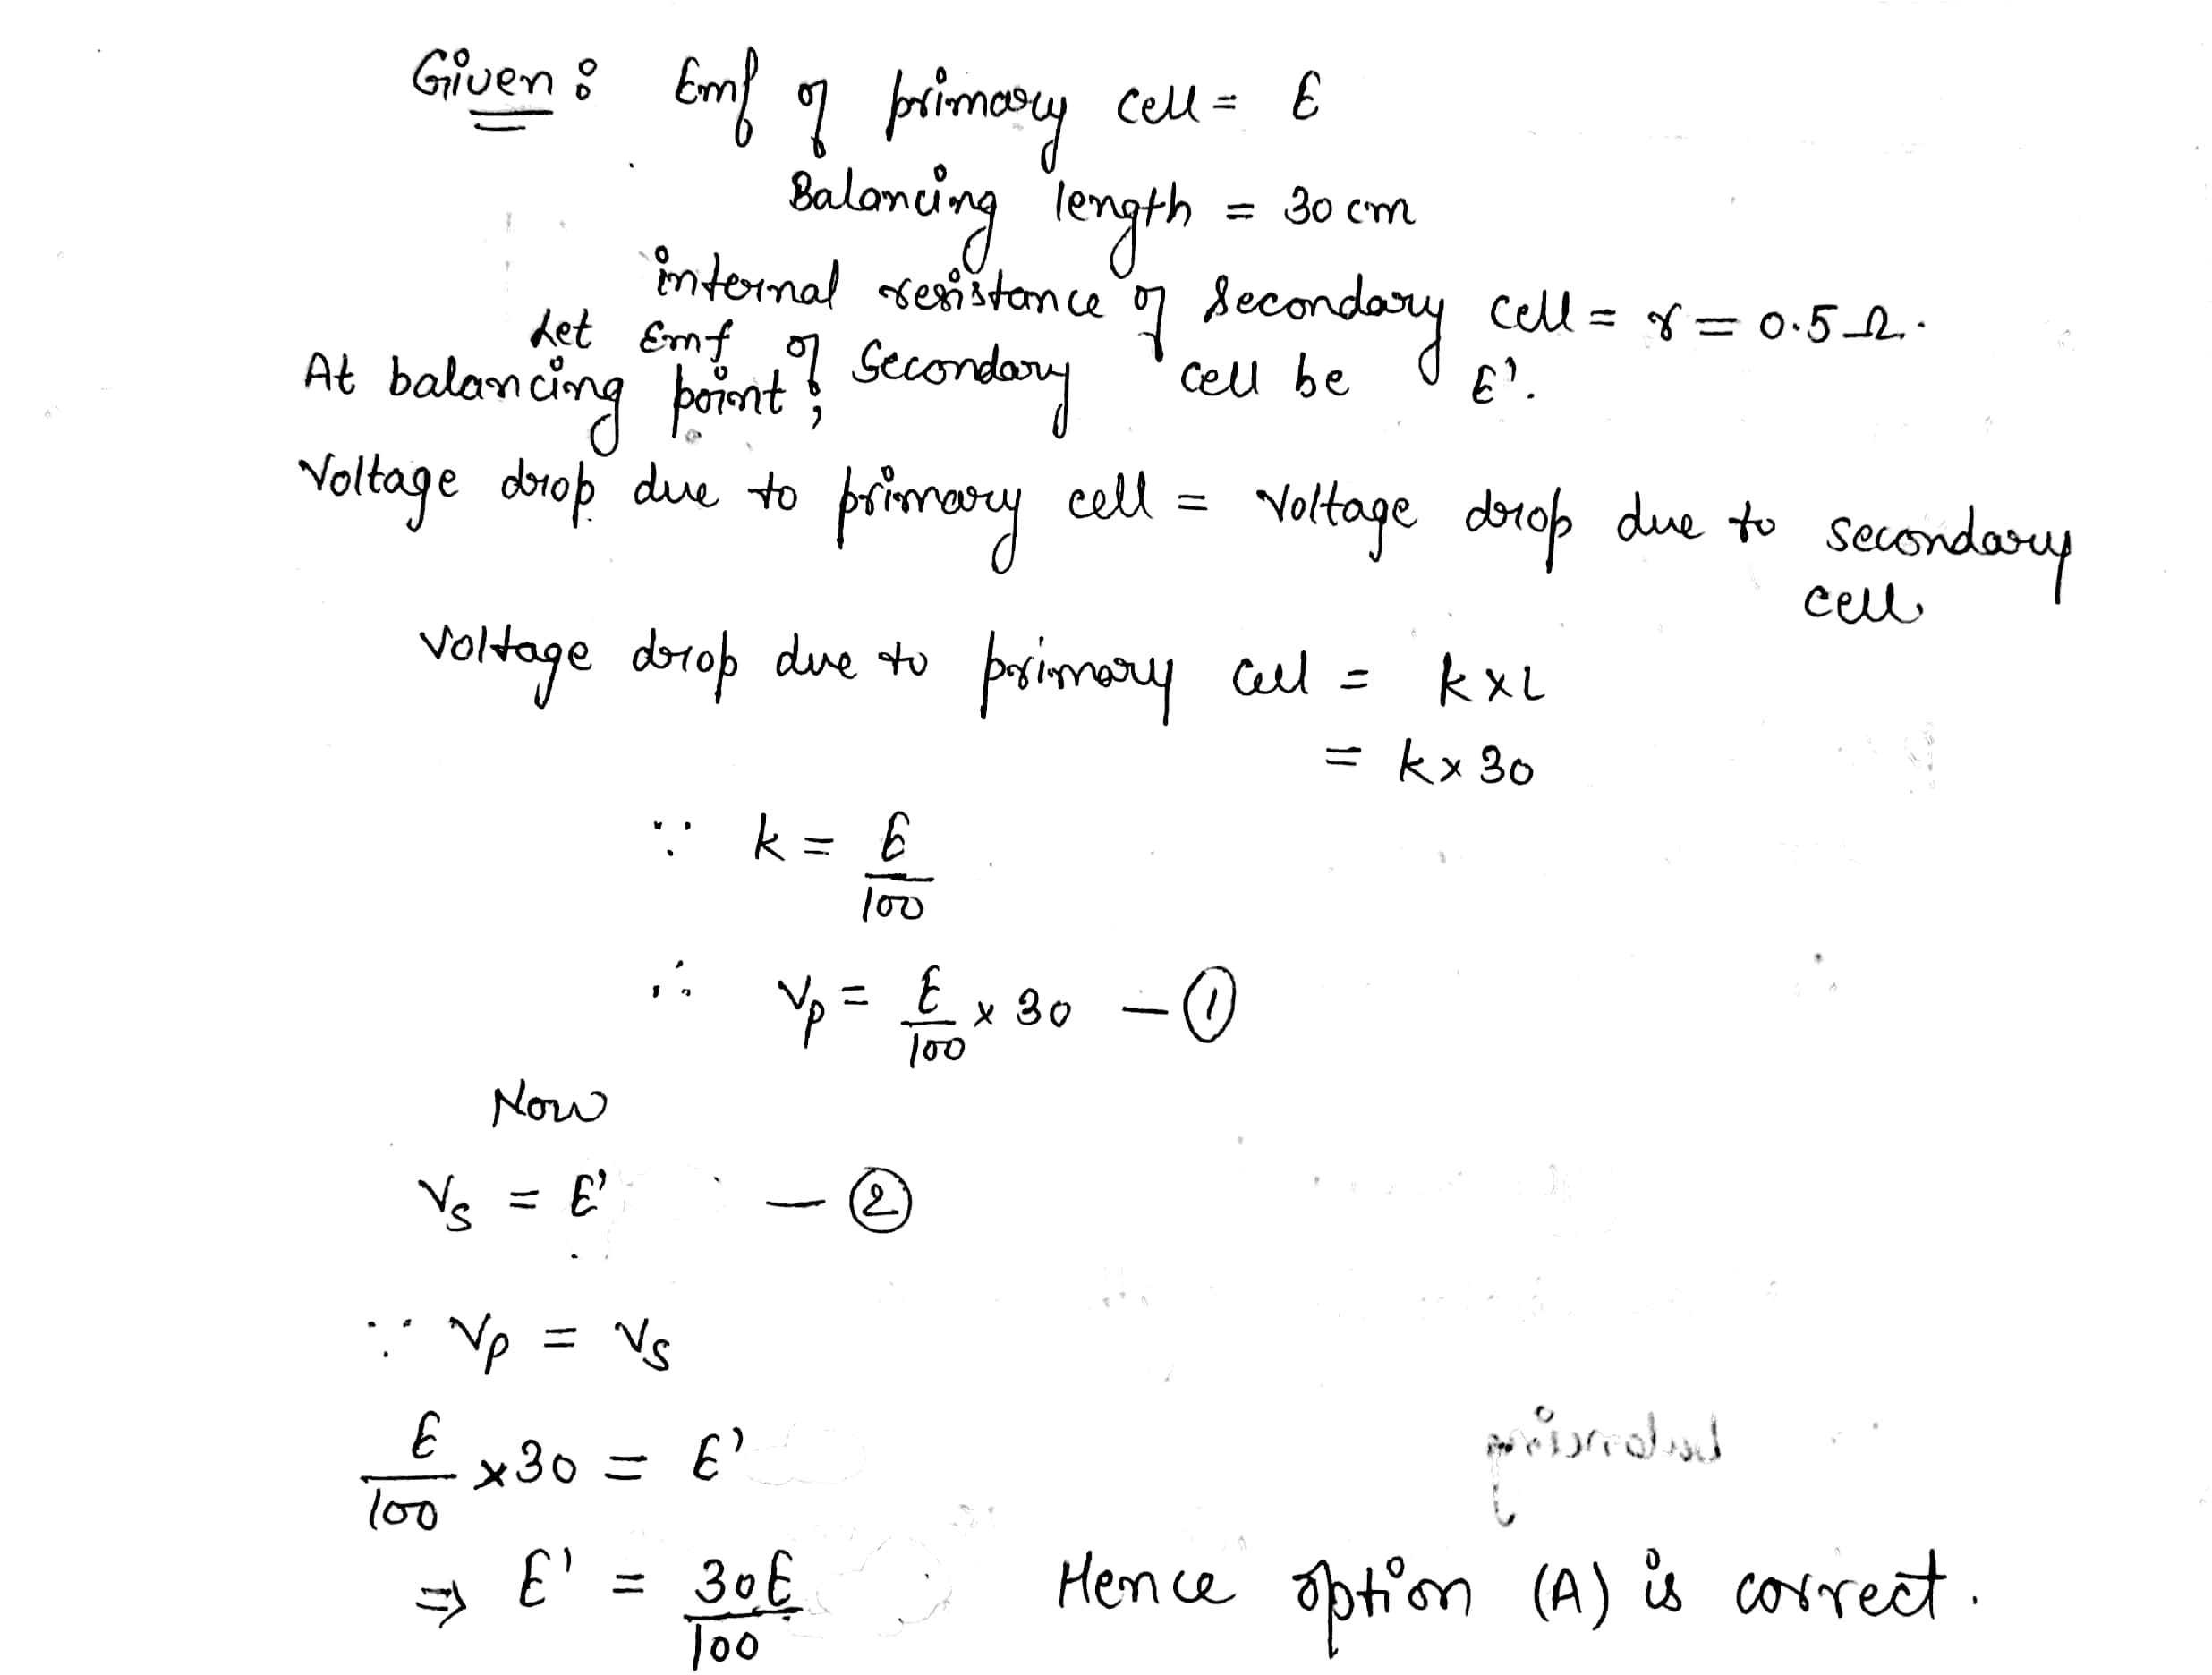 Given : Emf of primary cell = E
Balancing length = 30 cm
internal resistance of secondary cell = r = 0.5 Ω.
Let Emf of secondary cell be E'.
At balancing point ;
Voltage drop due to primary cell = Voltage drop due to secondary
cell.
Voltage drop due to primary cell = k × L
= k × 30
∵ k = E/100
∴ Vp = E/100 × 30 — ①
Now
Vs = E' — ②
∵ Vp = Vs
E/100 × 30 = E'
balancing
⇒ E' = 30E/100 Hence option (A) is correct.